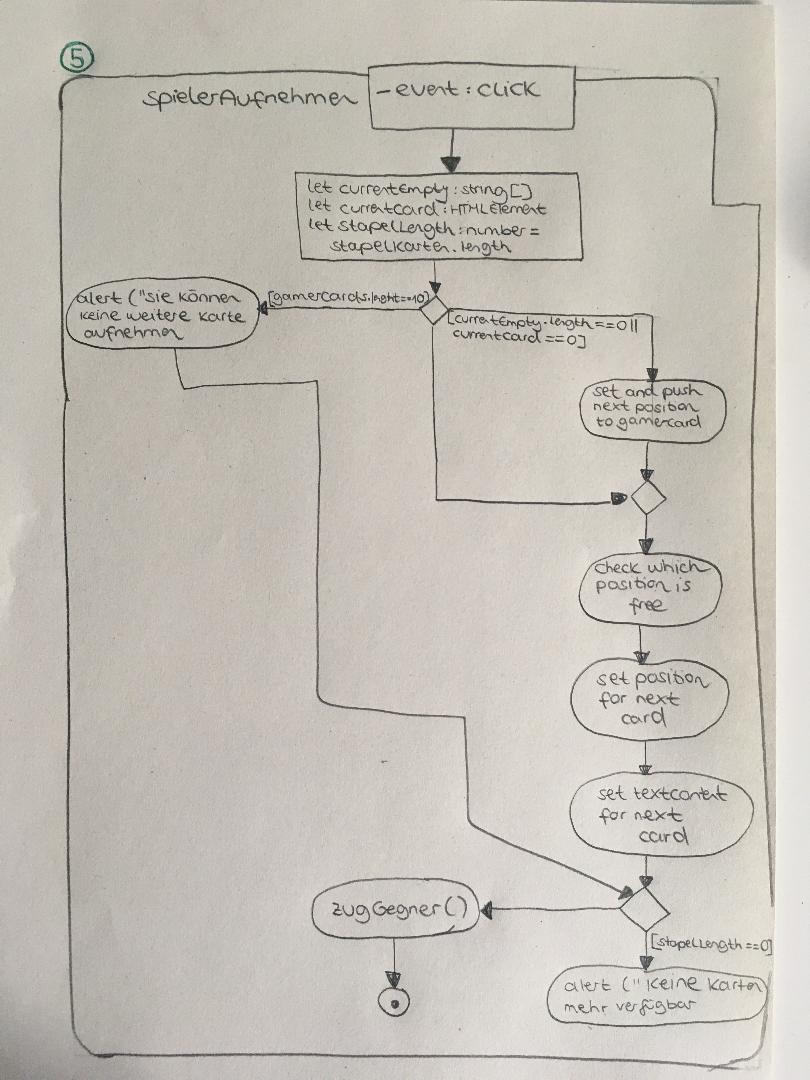 5
spielerAufnehmen
- event : click
let currentEmpty : string []
let currentCard : HTMLElement
let stapelLength : number =
stapelKarten.length
alert ("sie können
keine weitere karte
aufnehmen
[gamercards.lenght==10]
[currentEmpty.length==0 ||
currentcard ==0]
set and push
next position
to gamercard
check which
position is
free
set position
for next
card
set textcontent
for next
card
zugGegner()
[stapelLength ==0]
alert (" Keine Karten
mehr verfügbar